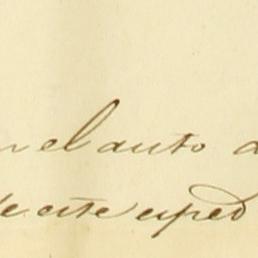 el auto
de este exped